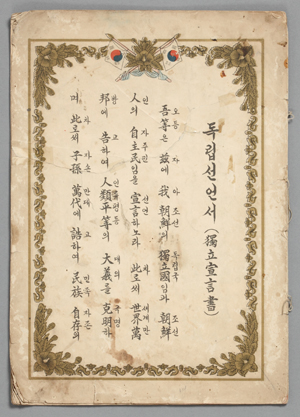 독립선언서 (獨立宣言書)
오등 자 아 조선 독립국 조선
吾等은 玆에 我 朝鮮의 獨立國임과 朝鮮
인 자주민 선언 차 세계만
人의 自主民임을 宣言하노라 此로써 世界萬
방 고 인류평등 대의 극명
邦에 告하여 人類平等의 大義를 克明하
차 자손 만대 고 민족 자존
며 此로써 子孫 萬代에 誥하여 民族 自存의